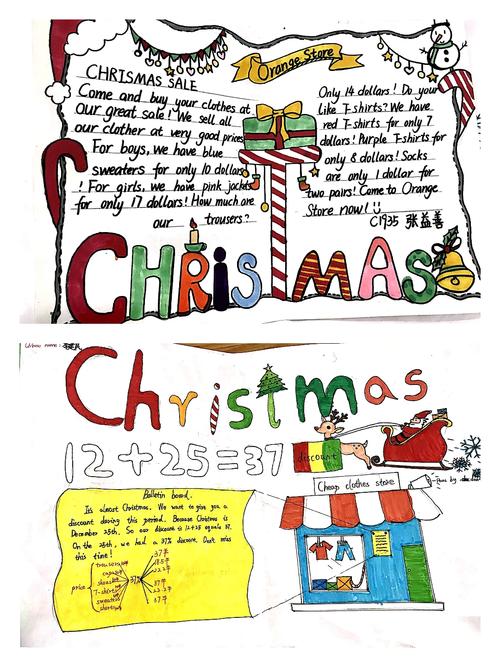 Orange Store
CHRISMAS SALE
Come and buy your clothes at
Our great sale! We sell all
our clother at very good prices
For boys, we have blue
sweaters for only 10 dollars
! For girls, we have pink jackets
for only 17 dollars! How much are
our trousers?
Only 14 dollars! Do you
like T-shirts? We have
red T-shirts for only 7
dollars! Purple T-shirts for
only 8 dollars! Socks
are only 1 dollar for
two pairs! Come to Orange
Store now!
C1935 张益善
CHRISTMAS
Christmas
12+25=37
discount
Cheap clothes store
Bulletin board.
It's almost Christmas. We want to give you a
discount during this period. Because Christmas is
December 25th. So our discount is 12+25 equals 37.
On the 25th, we had a 37% discount. Don't miss
this time!
price
trousers
cap
shoes
T-shirt
sweater
shorts
37%